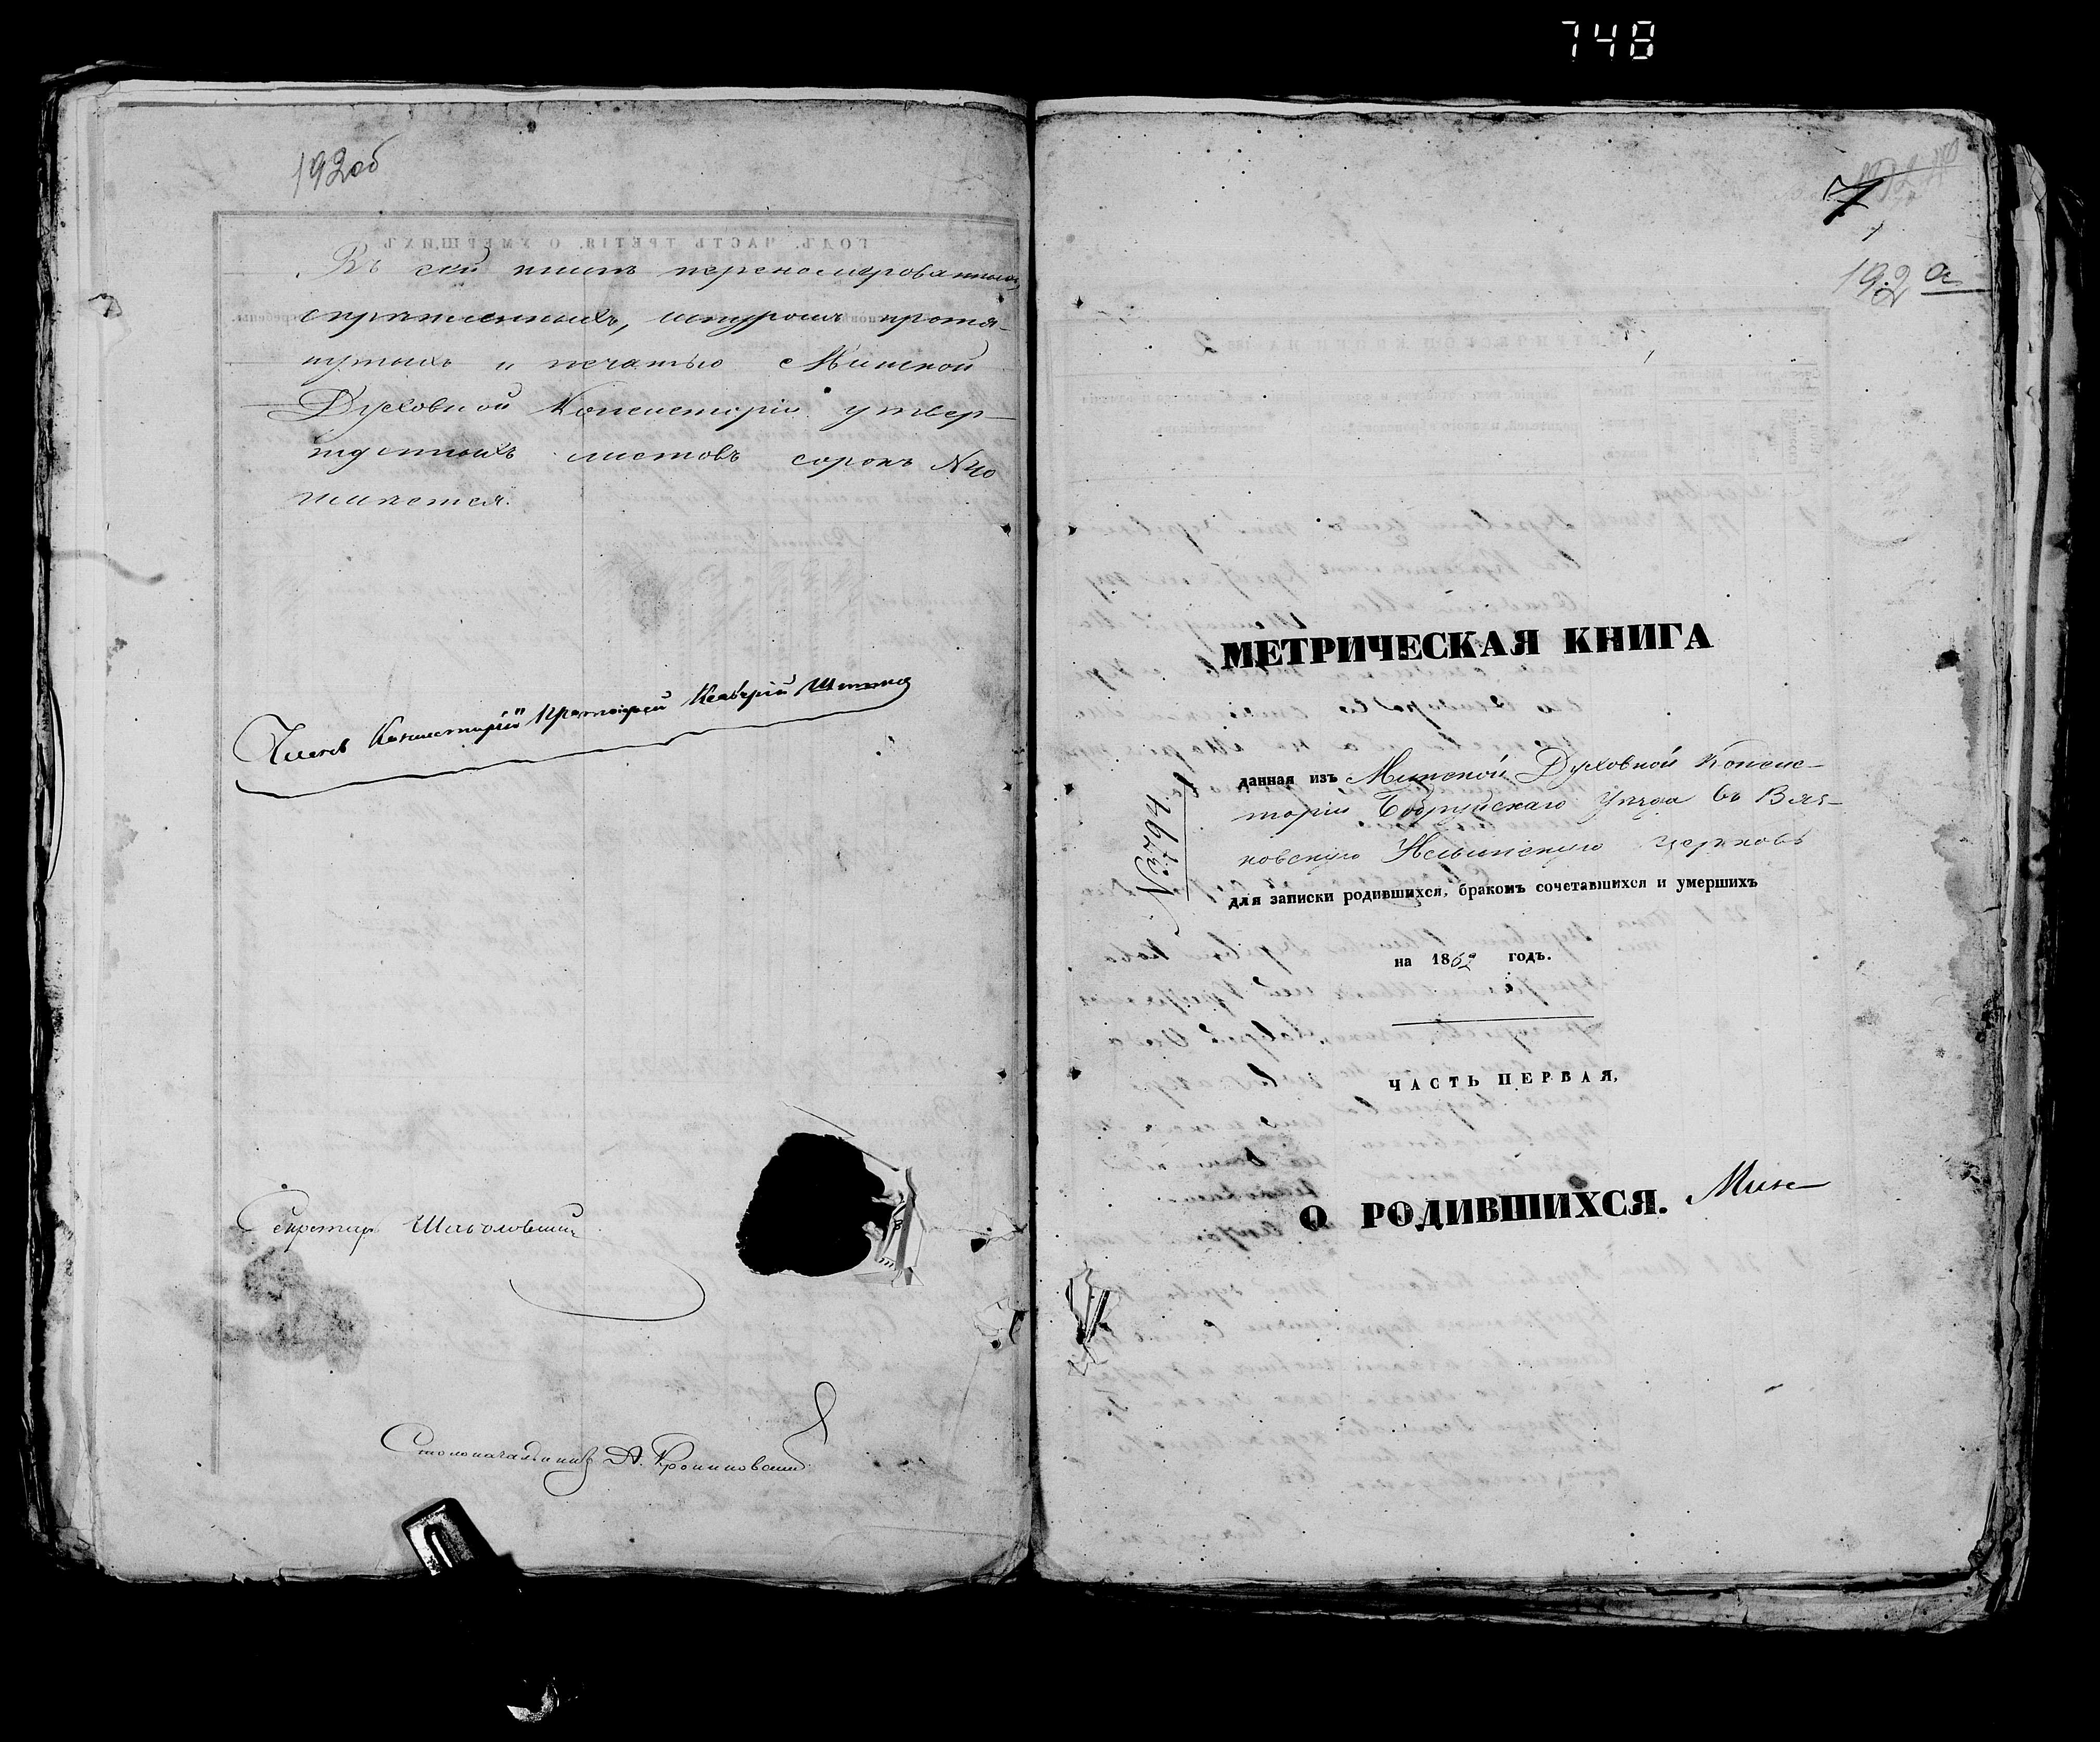 748
192об
Въ сей книгѣ перенумерованныхъ,
скрѣпленныхъ, шнуромъ протя-
нутыхъ и печатью Минской
Духовной Консисторіи утвер-
жденныхъ листовъ сорокъ №40
числится.
Членъ Консисторіи Протоіерей
Секретарь
Столоначальникъ А.
7
1
192 а
МЕТРИЧЕСКАЯ КНИГА
данная изъ Минской Духовной Консис-
торіи Бобруйскаго Уѣзда въ Вяз-
ковскую Ильинскую церковь
для записки родившихся, бракомъ сочетавшихся и умершихъ
на 1862 годъ.
ЧАСТЬ ПЕРВАЯ,
О РОДИВШИХСЯ. Мин
№3794